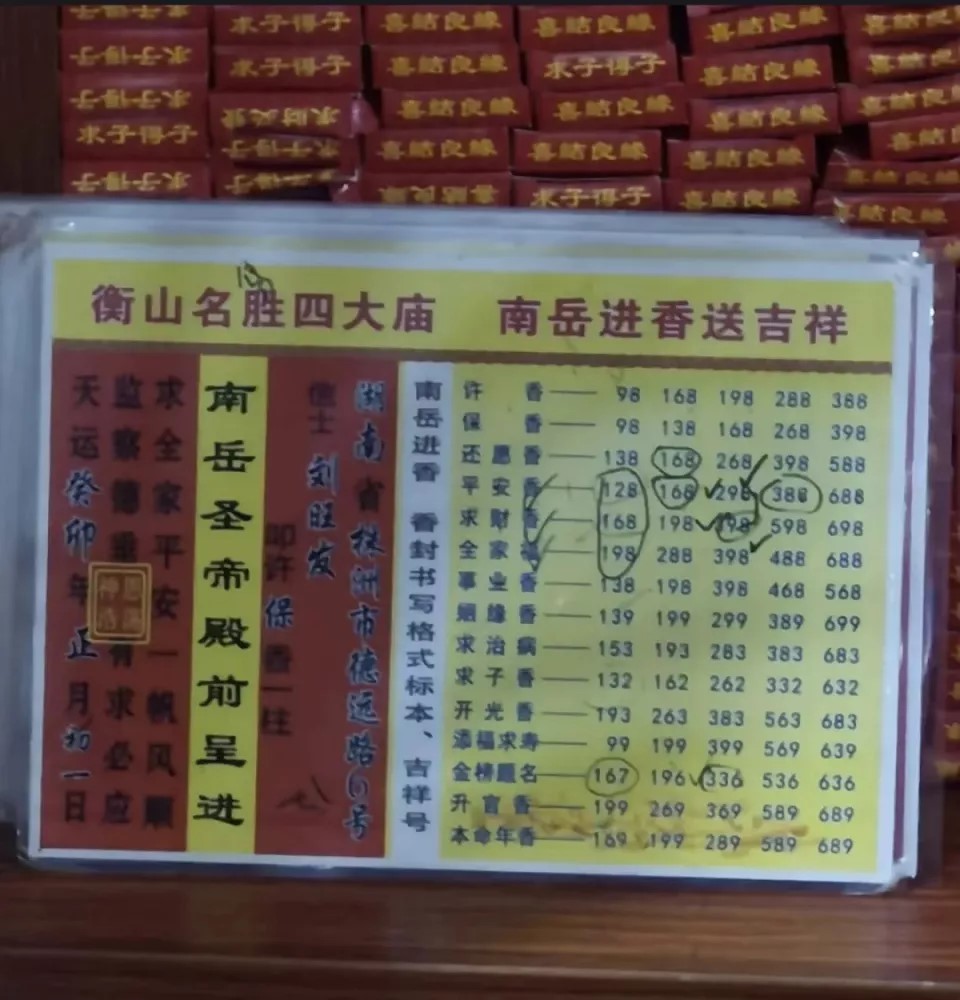 求子得子 求子得子 喜結良緣 喜結良緣 喜結良緣 喜結良緣
求子得子 求子得子 喜結良緣 求子得子 喜結良緣 喜結良緣
求子得子 喜結良緣 喜結良緣 喜結良緣 喜結良緣
求子得子 求子得子 喜結良緣 喜結良緣 喜結良緣
求子得子 求子得子 喜結良緣 喜結良緣
喜結良緣
衡山名胜四大庙 南岳进香送吉祥
天运癸卯年正月初一日
监察德重
有求必应
求全家平安一帆风顺
南岳圣帝殿前呈进
叩许保香一柱
信士 刘旺发
湖南省株洲市德远路61号
南岳进香 香封书写格式标本、吉祥号
许香——98 168 198 288 388
保香——98 138 168 268 398
还愿香——138 168 268 398 588
平安香——128 168 298 388 688
求财香——168 198 398 598 698
全家福——198 288 398 488 688
事业香——138 198 398 468 568
姻缘香——139 199 299 389 699
求治病——153 193 283 383 683
求子香——132 162 262 332 632
开光香——193 263 383 563 683
添福求寿——99 199 399 569 639
金榜题名——167 196 336 536 636
升官香——199 269 369 589 689
本命年香——169 199 289 589 689